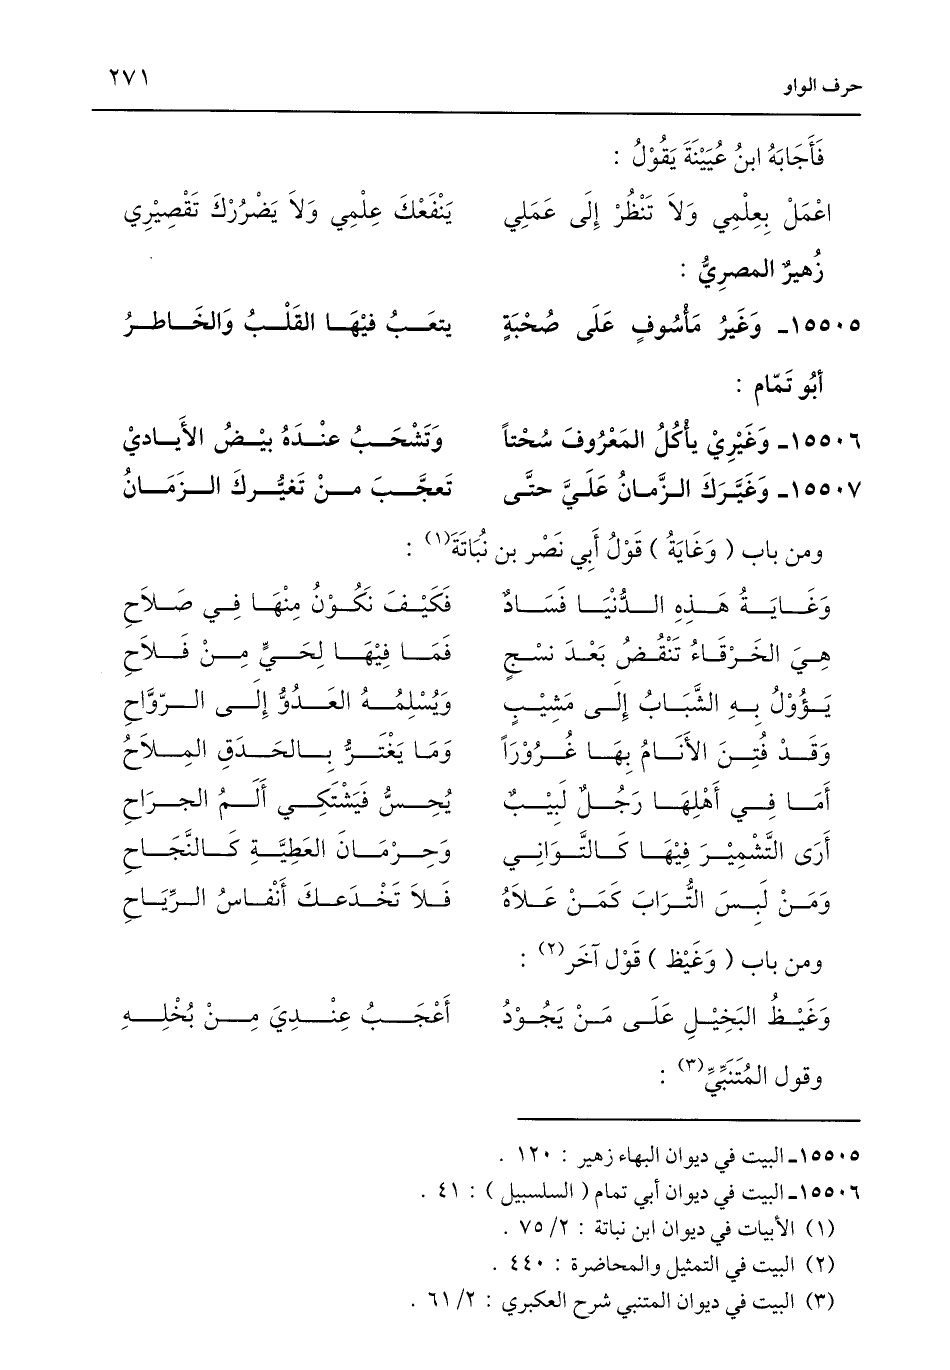 حرف الواو ٢٧١
فَأَجَابَهُ ابنُ عُيَيْنَةَ يَقُوْلُ :
اعْمَلْ بِعِلْمِي وَلاَ تَنْظُرْ إِلَى عَمَلِي يَنْفَعْكَ عِلْمِي وَلاَ يَضْرُرْكَ تَقْصِيْرِي
زُهيرٌ المصرِيُّ :
١٥٥٠٥ـ وَغَيرُ مَأْسُوفٍ عَلَى صُحْبَةٍ يتعَبُ فيْهَا القَلْبُ وَالخَاطرُ
أبُو تَمّام :
١٥٥٠٦ـ وَغَيْرِيْ يأْكُلُ المَعْرُوفَ سُحْتاً وَتَشْحَبُ عنْدَهُ بيْضُ الأَيادِيْ
١٥٥٠٧ـ وَغَيَّرَكَ الزَّمانُ عَلَيَّ حتَّى تَعجَّبَ منْ تَغَيُّرِكَ الزَمَانُ
ومن باب ( وَغَايَةُ ) قَوْلُ أَبِي نَصْر بن نُبَاتَةَ(١) :
وَغَايَةُ هَذِهِ الدُّنْيَا فَسَادٌ فَكَيْفَ نَكُوْنُ مِنْهَا فِي صَلاَحِ
هِيَ الخَرْقَاءُ تَنْقُضُ بَعْدَ نسْجٍ فَمَا فِيْهَا لِحَيٍّ مِنْ فَلاَحِ
يَؤُوْلُ بِهِ الشَّبَابُ إِلَى مَشِيْبٍ وَيُسْلِمُهُ الغَدُوُّ إِلَى الرَّوَّاحِ
وَقَدْ فُتِنَ الأَنَامُ بِهَا غُرُوْرَاً وَمَا يَغْتَرُّ بِالحَدَقِ المِلاَحُ
أَمَا فِي أَهْلِهَا رَجُلٌ لَبِيْبٌ يُحِسُّ فَيَشْتَكِي أَلَمُ الجرَاحِ
أَرَى التَّشْمِيْرَ فِيْهَا كَالتَّوَانِي وَحِرْمَانَ العَطِيَّةِ كَالنَّجَاحِ
وَمَنْ لَبِسَ التُّرَابَ كَمَنْ عَلاَهُ فَلاَ تَخْدَعكَ أَنْفَاسُ الرِّيَاحِ
ومن باب ( وَغَيْظ ) قَوْل آخَر(٢) :
وَغَيْظُ البَخِيْلِ عَلَى مَنْ يَجُوْدُ أَعْجَبُ عِنْدِيَ مِنْ بُخْلِهِ
وقول المُتَنَبِّيِّ(٣) :
١٥٥٠٥ـ البيت في ديوان البهاء زهير : ١٢٠ .
١٥٥٠٦ـ البيت في ديوان أبي تمام ( السلسبيل ) : ٤١ .
(١) الأبيات في ديوان ابن نباتة : ٢/ ٧٥ .
(٢) البيت في التمثيل والمحاضرة : ٤٤٠ .
(٣) البيت في ديوان المتنبي شرح العكبري : ٢/ ٦١ .